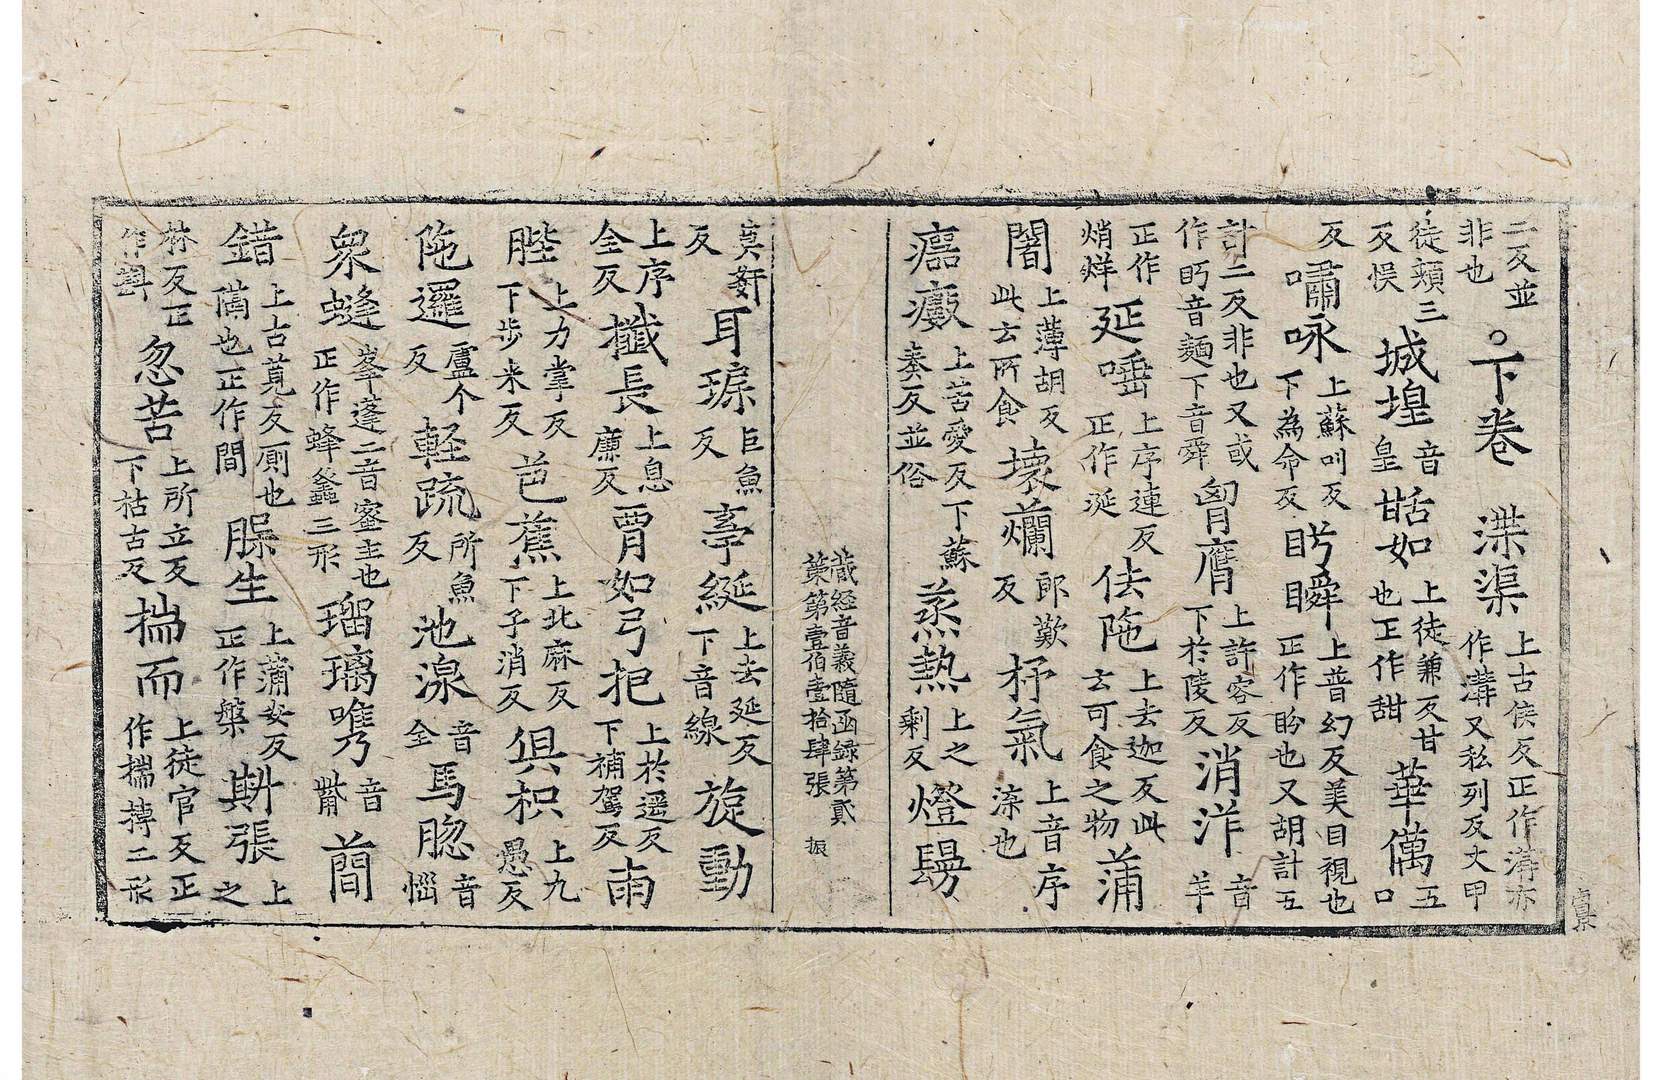 二反並非也。下卷 渫渠上古侯反正作溝亦作溝又私列反丈甲
徒頰三反悮 城堭音皇 甛如上徒兼反甘也正作甜 華傌五口
反 嘯咏上蘇叫反下為命反 盻瞬上普幻反美目視也目目正作盼也又胡計五
計二反非也又或作眄音麺下音舜 胷膺上許容反下於陵反 消洋音羊
正作焇烊 延唾上序連反正作涎 佉陁上去迦反此云可食之物 蒲
闍上薄胡反此云所食 壞爛郎歎反 杼氣上音序渿也
㾙瘶上苦愛反下蘇奏反並俗 蒸熱上之剩反 燈
藏經音義隨函錄第貳筞第壹伯壹拾肆張 振
莫轩反 耳璩巨魚反 亭綖上去延反下音線 旋動
上序全反 攕長上息廉反 賈如弓把上於遥反下補駕反 雨
䏶上力掌反下步米反 芭蕉上北麻反下子消反 俱枳上九愚反
陁邏盧个反 輕疏所魚反 池湶音全 馬腦音惱
衆蜂峯蓬二音蜜主也正作蜂螽三形 瑠璃嘴音觜 蕑
錯上古莧反厠也㒼也正作間 腂生上蒲女反正作槃 斞張上之
林反正作斟 忽苦上所立反下枯古反 揣而上徒官反正作揣摶二形